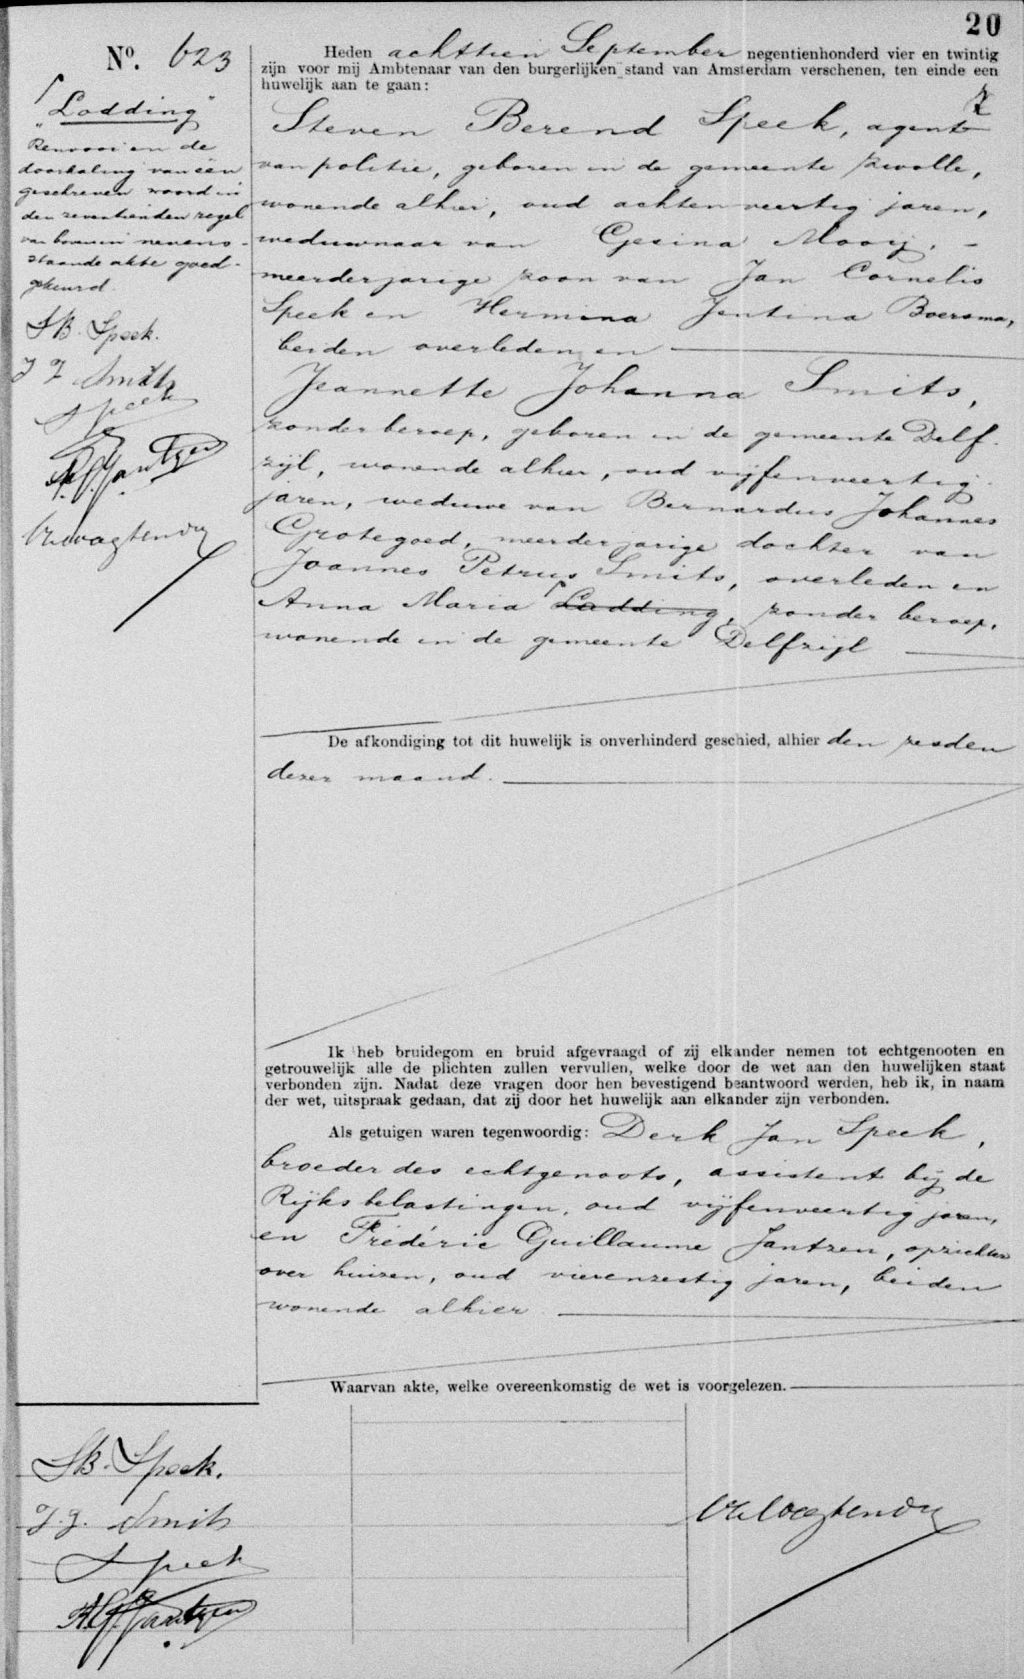 20
Nº. 623
Heden achttien September negentienhonderd vier en twintig
zijn voor mij Ambtenaar van den burgerlijken stand van Amsterdam verschenen, ten einde een
huwelijk aan te gaan:
Steven Berend Speek, agent
van politie, geboren in de gemeente Zwolle,
wonende alhier, oud achtenveertig jaren,
weduwnaar van Gesina Mooij,
meerderjarige zoon van Jan Cornelis
Speek en Hermina Jentina Boersma,
beiden overleden, en
Jeannette Johanna Smits,
zonder beroep, geboren in de gemeente Delf-
zijl, wonende alhier, oud vijfenveertig
jaren, weduwe van Bernardus Johannes
Grotegoed, meerderjarige dochter van
Joannes Petrus Smits, overleden en
Anna Maria Ladding, zonder beroep,
wonende in de gemeente Delfzijl
"Lodding"
Renvooi en de
doorhaling van één
geschreven woord in
den zeventienden regel
van boven in nevens-
staande akte goed-
gekeurd.
SB. Speek.
J J Smits
Speek
De afkondiging tot dit huwelijk is onverhinderd geschied, alhier den zesden
dezer maand.
Ik heb bruidegom en bruid afgevraagd of zij elkander nemen tot echtgenooten en
getrouwelijk alle de plichten zullen vervullen, welke door de wet aan den huwelijken staat
verbonden zijn. Nadat deze vragen door hen bevestigend beantwoord werden, heb ik, in naam
der wet, uitspraak gedaan, dat zij door het huwelijk aan elkander zijn verbonden.
Als getuigen waren tegenwoordig: Derk Jan Speek,
broeder des echtgenoots, assistent bij de
Rijksbelastingen, oud vijfenveertig jaren,
en Fréderic Guillaume Jantzen, opzichter
over huizen, oud vierenzestig jaren, beiden
wonende alhier
Waarvan akte, welke overeenkomstig de wet is voorgelezen.
SB. Speek.
J.J. Smits
Speek